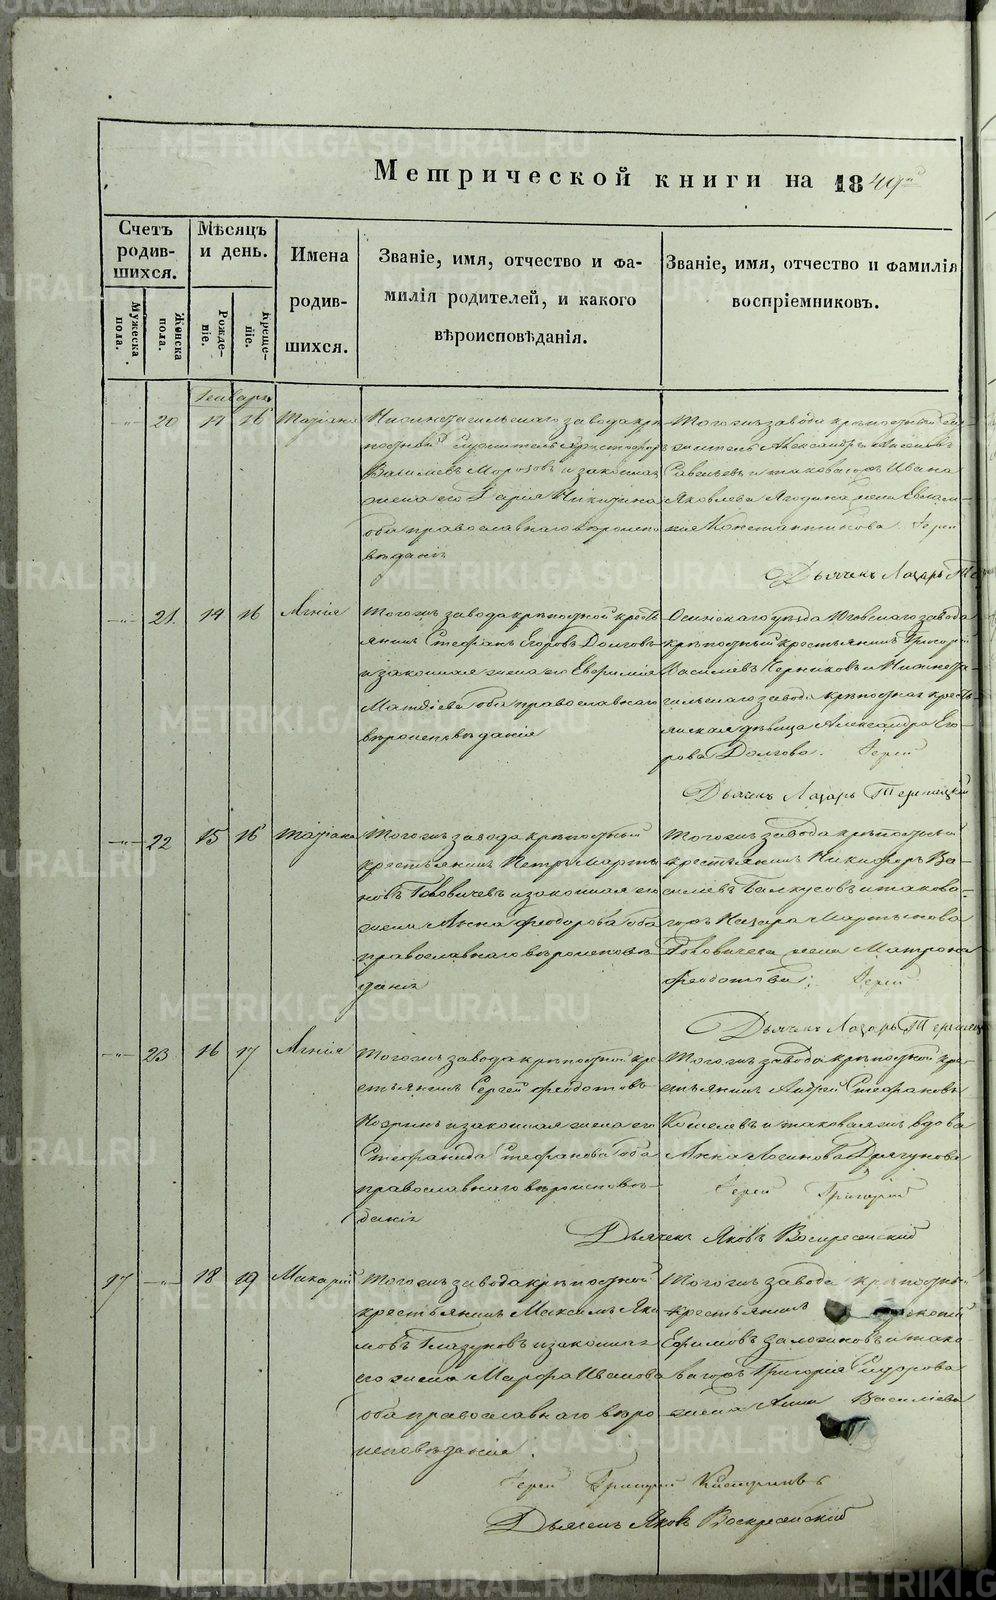 Метрической книги на 1849й
Счетъ родившихся.
Мужеска пола.
Женска пола.
Мѣсяцъ и день.
Рожденіе.
Крещеніе.
Имена родившихся.
Званіе, имя, отчество и фамилія родителей, и какого вѣроисповѣданія.
Званіе, имя, отчество и фамилія воспріемниковъ.
Генваря
20 11 16 Татіана
Нижнетагильскаго завода крѣ
постный служитель
Васильевъ Морозовъ и законная
жена его Дарія Никитина
оба православнаго вѣроиспо
вѣданія
Тогожъ завода крѣпостный слу
житель Александръ
Савельевъ и таковагожъ Ивана
Яковлева Ягодина жена Евлам
пія Константинова Іерей
Дьячекъ Лазарь
21. 14 16 Агнія
Тогожъ завода крѣпостной кресть
янинъ Стефанъ Егоровъ Долговъ
и законная жена его Евфимія
Матвѣева оба православнаго
вѣроисповѣданія
Осинскаго уѣзда Юговскаго завода
крѣпостный крестьянинъ Григорій
Васильевъ Черниковъ и Нижнета
гильскаго завода крѣпостная кресть
янская дѣвица Александра Его
рова Долгова. Іерей
Дьячекъ Лазарь
22 15 16 Татіана
Тогожъ завода крѣпостный
крестьянинъ Петръ Марты
новъ и законная его
жена Анна Феодорова оба
православнаго вѣроисповѣ
данія
Тогожъ завода крѣпостный
крестьянинъ Никифоръ Ва
сильевъ и таково
гожъ Назара Мартынова
жена Матрона
Феодотова; Іерей
Дьячекъ Лазарь
23 16 17 Агнія
Тогожъ завода крѣпостной кре
стьянинъ Сергей Феодотовъ
и законная жена его
Стефанида Стефанова оба
православнаго вѣроисповѣ
данія
Тогожъ завода крѣпостной кре
стьянинъ Андрей Стефановъ
Кошелевъ и таковаяжъ вдова
Анна Логинова Драгунова
Іерей Григорій
Дьячекъ Яковъ Воскресенскій
17 18 19 Макарій
Тогожъ завода крѣпостной
крестьянинъ Максимъ Яки
мовъ Глазуновъ и законная
его жена Марфа Иванова
оба православнаго вѣро
исповѣданія.
Тогожъ завода крѣпостный
крестьянинъ
Ефимовъ Залогиновъ и тако
вагожъ Григорія Сидорова
жена Анна Васильева
Іерей Григорій
Дьячекъ Яковъ Воскресенскій
METRIKI.GASO-URAL.RU